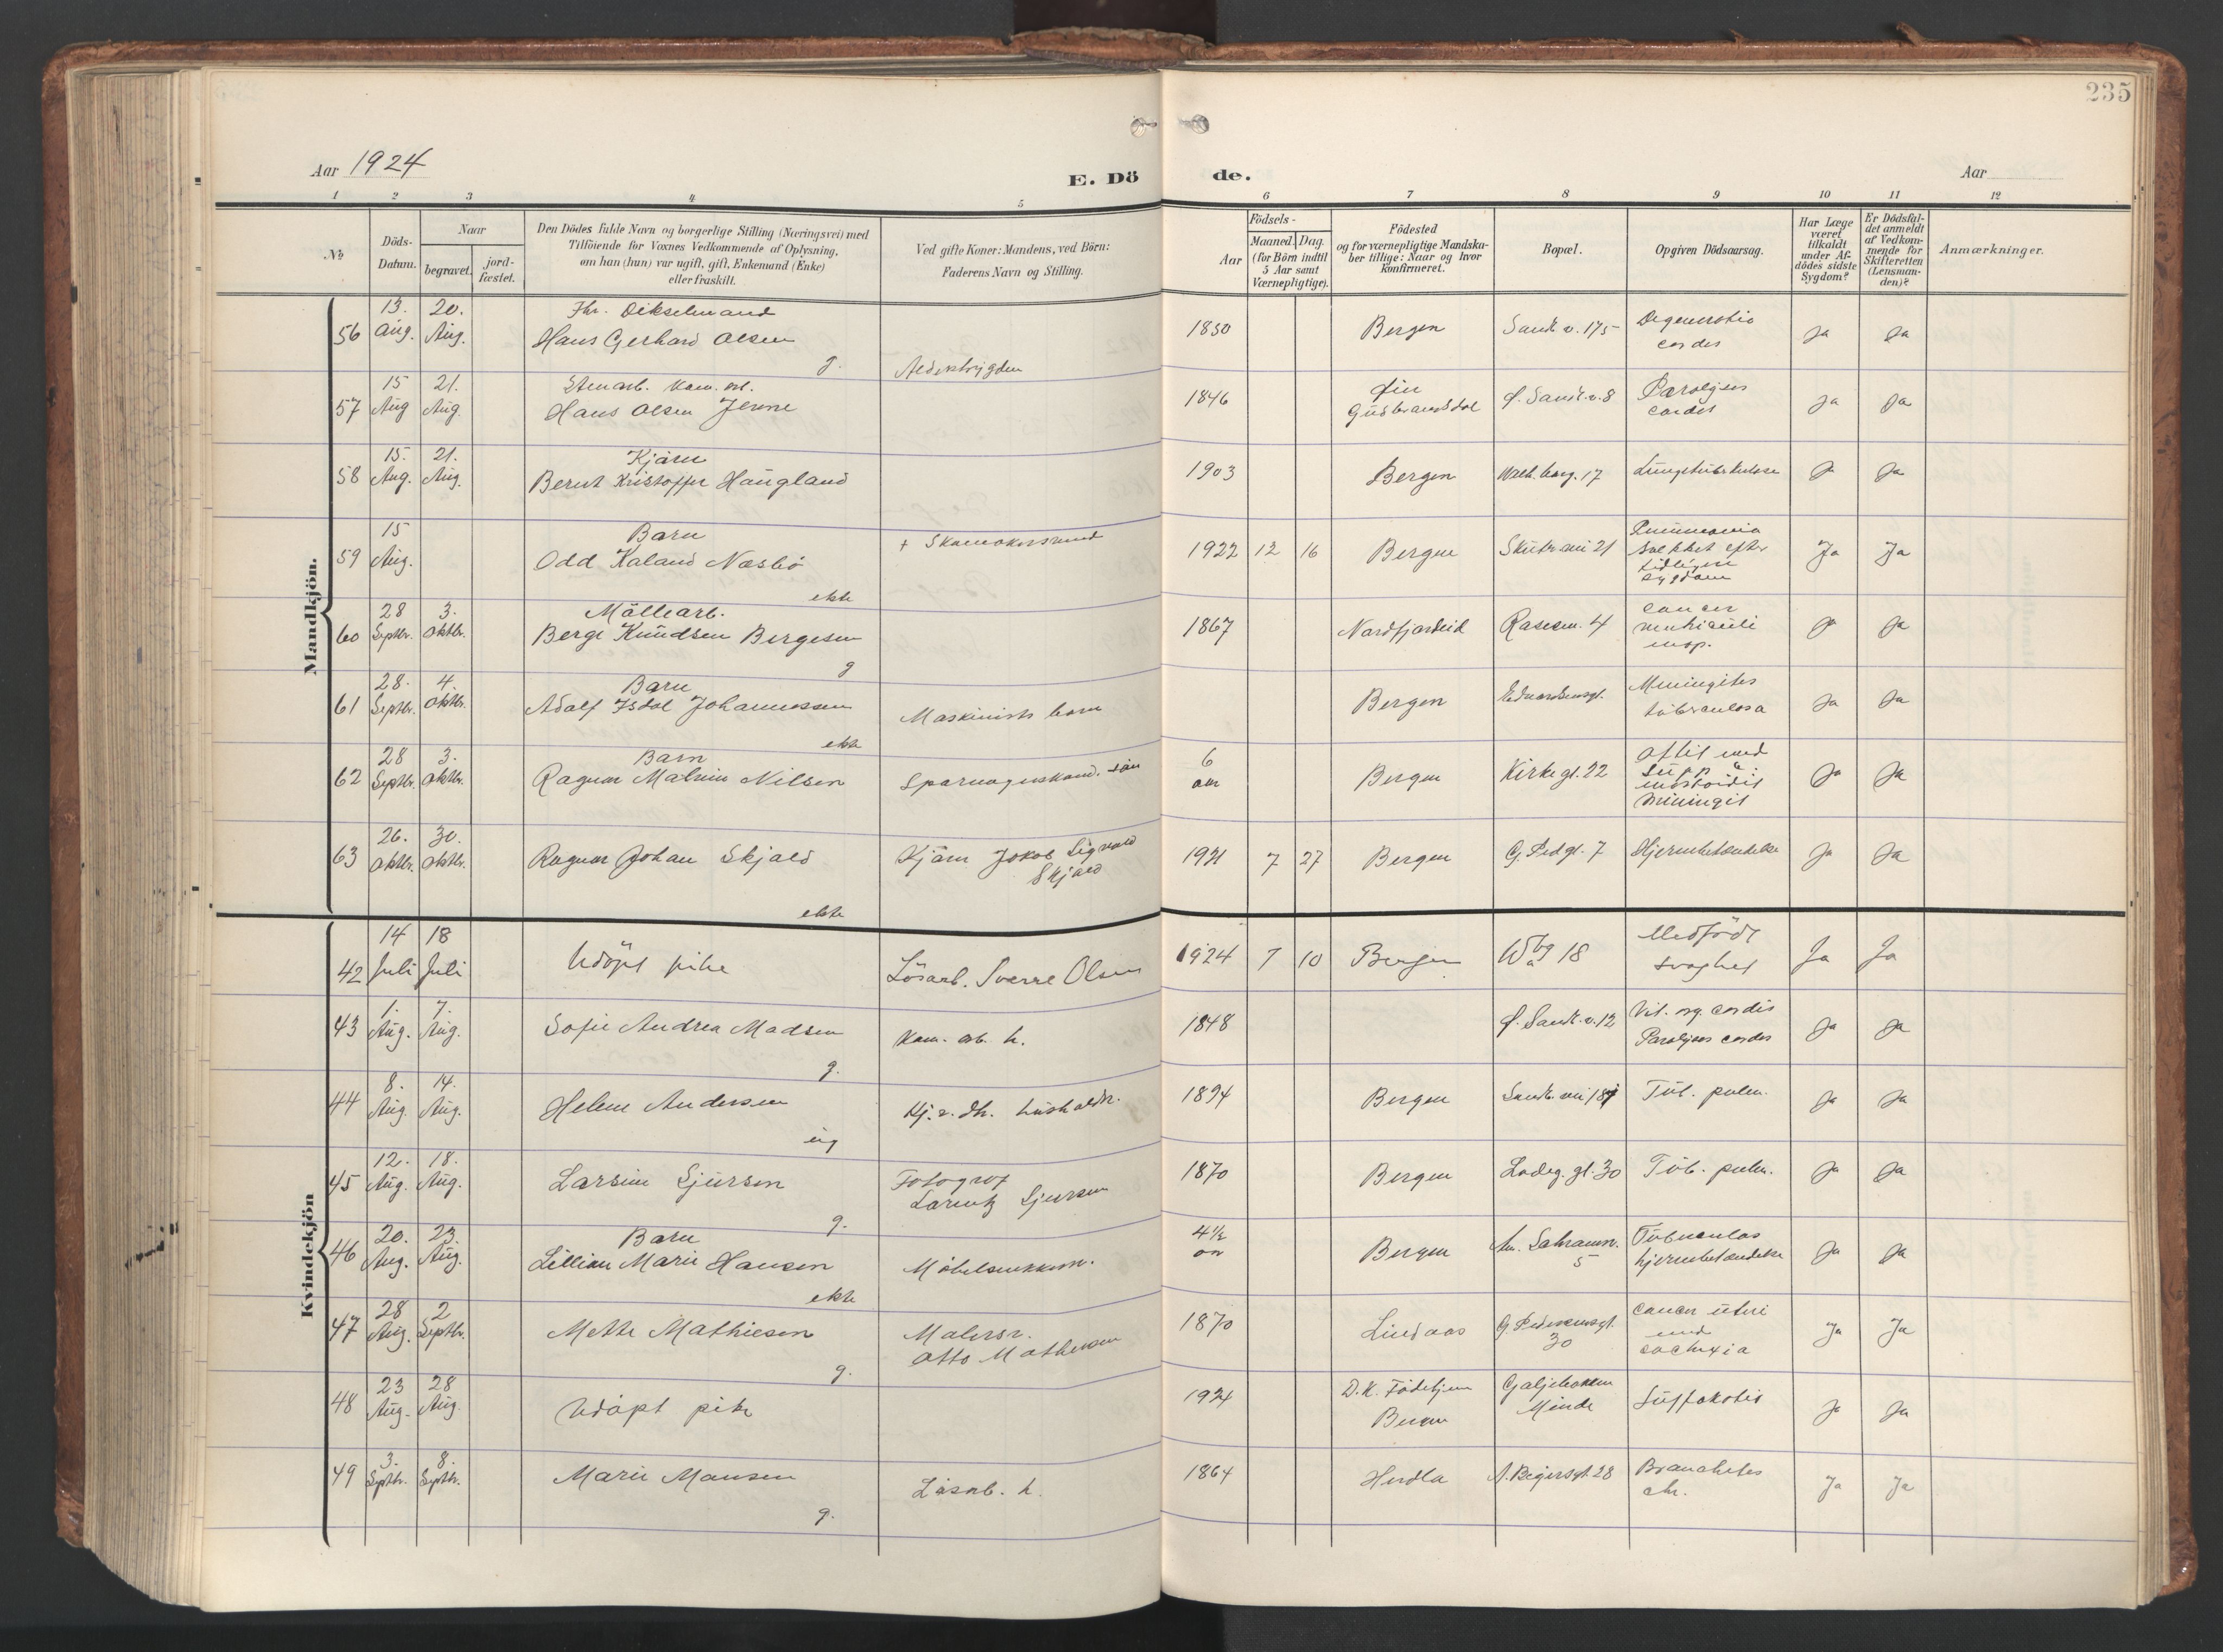 235
Aar 1924
E. Dö de.
Aar
1 2 3 4 5 6 7 8 9 10 11 12
No
Döds-Datum.
Naar
begravet.
jord-fæstet.
Den Dödes fulde Navn og borgerlige Stilling (Næringsvei) med
Tilföiende for Voxnes Vedkommende af Oplysning,
om han (hun) var ugift, gift, Enkemand (Enke)
eller fraskilt.
Ved gifte Koner: Mandens, ved Börn:
Faderens Navn og Stilling.
Aar
Födsels-
Maaned. Dag.
(for Börn indtil
5 Aar samt
Værnepligtige).
Födested
og for værnepligtige Mandska-
ber tillige: Naar og hvor
Konfirmeret.
Bopæl.
Opgiven Dödsaarsag.
Har Læge
været
tilkaldt
under Af-
dödes sidste
Sygdom?
Er Dödsfal-
det anmeldt
af Vedkom-
mende for
Skifteretten
(Lensman-
den)?
Anmærkninger.
Mandkjön.
56 13. Aug. 20. Aug.
Hans Gerhard Olsen
g.
1850 Bergen Sandv.v. 175 Degeneratio cordis Ja Ja
57 15 Aug 21. Aug.
Stenarb.
Hans Olsen
1846 Gudbrandsdal Ø. Sandv.v. 8 Paralysis cordis Ja Ja
58 15. Aug. 21. Aug.
Bernt Kristoffer Haugland
1903 Bergen 17 Lungetuberkulose Ja Ja
59 15 Aug.
Barn
Odd Kaland Næsbö
ekte
1922 12 16 Bergen 21 Pneumonia svekket efter tidligere sygdom Ja Ja
60 28 Septbr. 3. Oktbr.
Möllearb.
Berge Knudsen Bergesen
g
1867 Nordfjordeid 4 cancer Ja Ja
61 28. Septbr. 4. Oktbr.
Barn
Adolf Isdal Johannessen
ekte
Maskinists barn
Bergen Edvardsensgt. Meningitis tuberculosa Ja Ja
62 28 Septbr. 3. Oktbr.
Barn
Ragnar Malvin Nilsen
Sporvognskond. sön
6 aar Bergen Kirkegt. 22 Otitis med mastoidit meningit Ja Ja
63 26. Oktbr. 30. Oktbr.
Ragnar Johan Skjold
ekte
Jakob Sigvald Skjold
1921 7 27 Bergen 7 Hjernebetendelse Ja Ja
Kvindekjön
42 14 Juli 18 Juli
Udöpt pike
Lösarb. Sverre Olsen
1924 7 10 Bergen 18 Medfödt svaghet Ja Ja
43 1. Aug. 7. Aug.
Sofie Andrea Madsen
g.
Kom. arb. h.
1848 Ø. Sandv.v. 12 Vit. org. cordis Paralysis cordis Ja Ja
44 8. Aug. 14. Aug.
Helene Andersen
ug
1894 Bergen Tub. pulm. Ja Ja
45 12. Aug. 18. Aug.
Larsine Sjursen
g.
Fotograf
Sjursen
1870 Bergen Ladeg. gt. 30 Tub. pulm. Ja Ja
46 20. Aug. 23. Aug.
Barn
Lillian Marie Hansen
ekte
4½ aar Bergen 5 Tuberculos hjernebetendelse Ja Ja
47 28 Aug. 2 Septbr.
Mette Mathiesen
g.
Malersv.
Otto Mathiesen
1870 Lindaas G. Pedersensgt. 30 Cancer uteri med cachexia Ja Ja
48 23 Aug. 28 Aug.
Udöpt pike
1924 D.K. Födehjem Bergen Minde Suffokatio Ja Ja
49 3. Septbr. 8. Septbr.
Marie Monsen
g.
Lösarb. h.
1864 Herdla 28 Bronchitis chr. Ja Ja